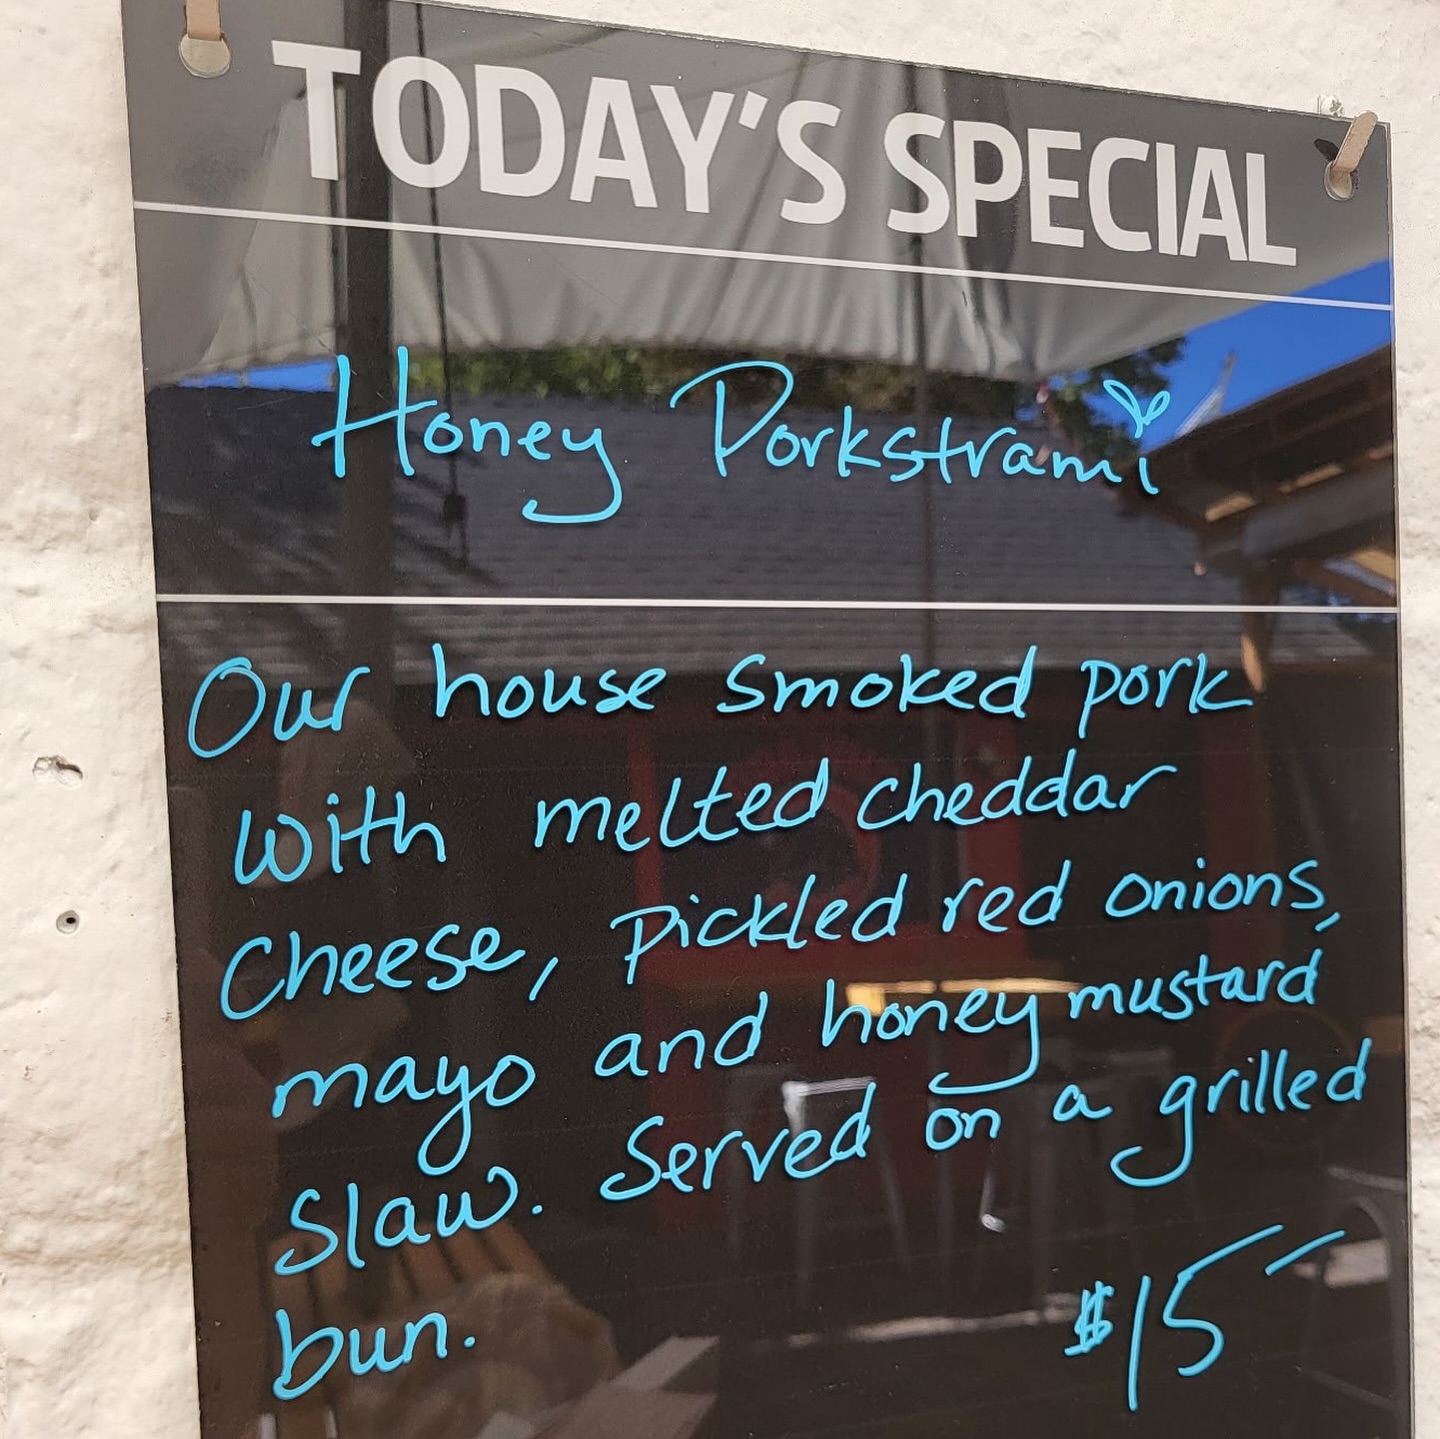 TODAY'S SPECIAL
Honey Porkstrami
Our house smoked pork
with melted cheddar
cheese, pickled red onions,
mayo and honey mustard
slaw. Served on a grilled
bun.
$15